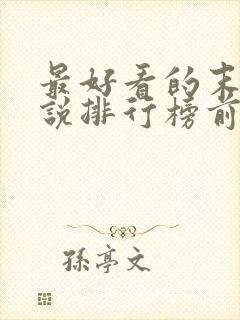 最好看的末
说排行榜前
孙亭文